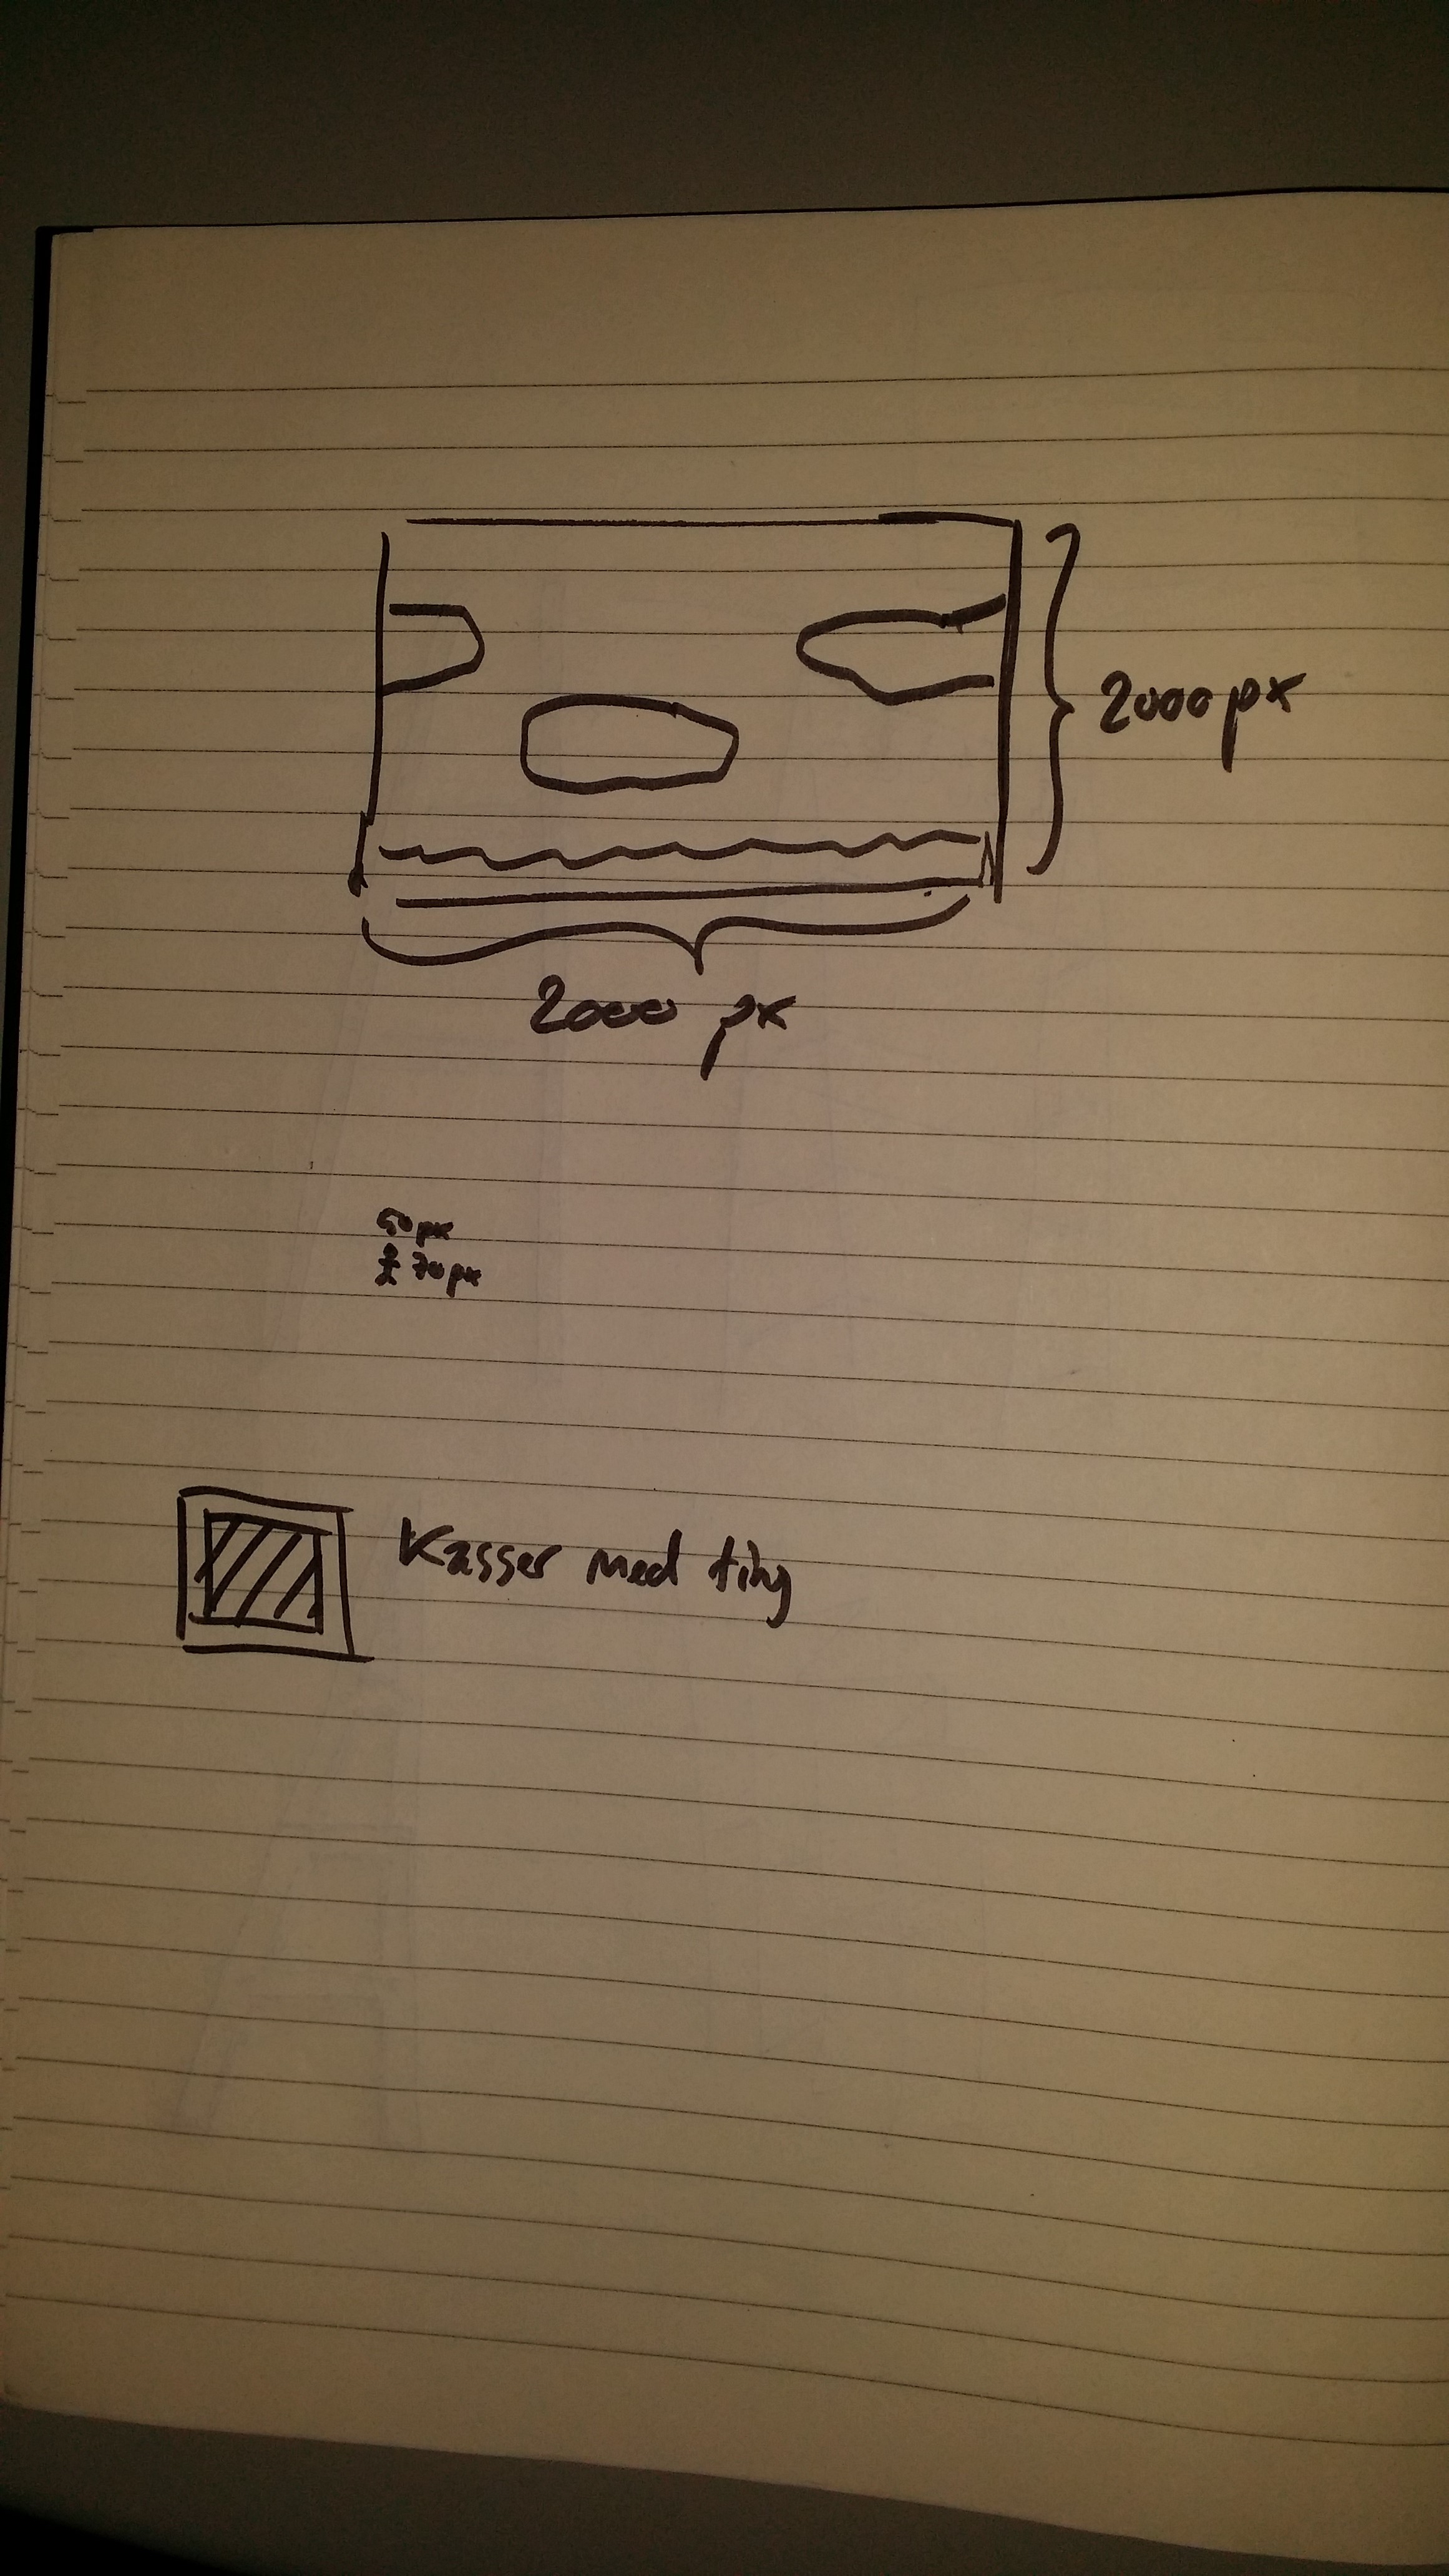 2000 px
2000 px
50px
70px
Kasser med ting